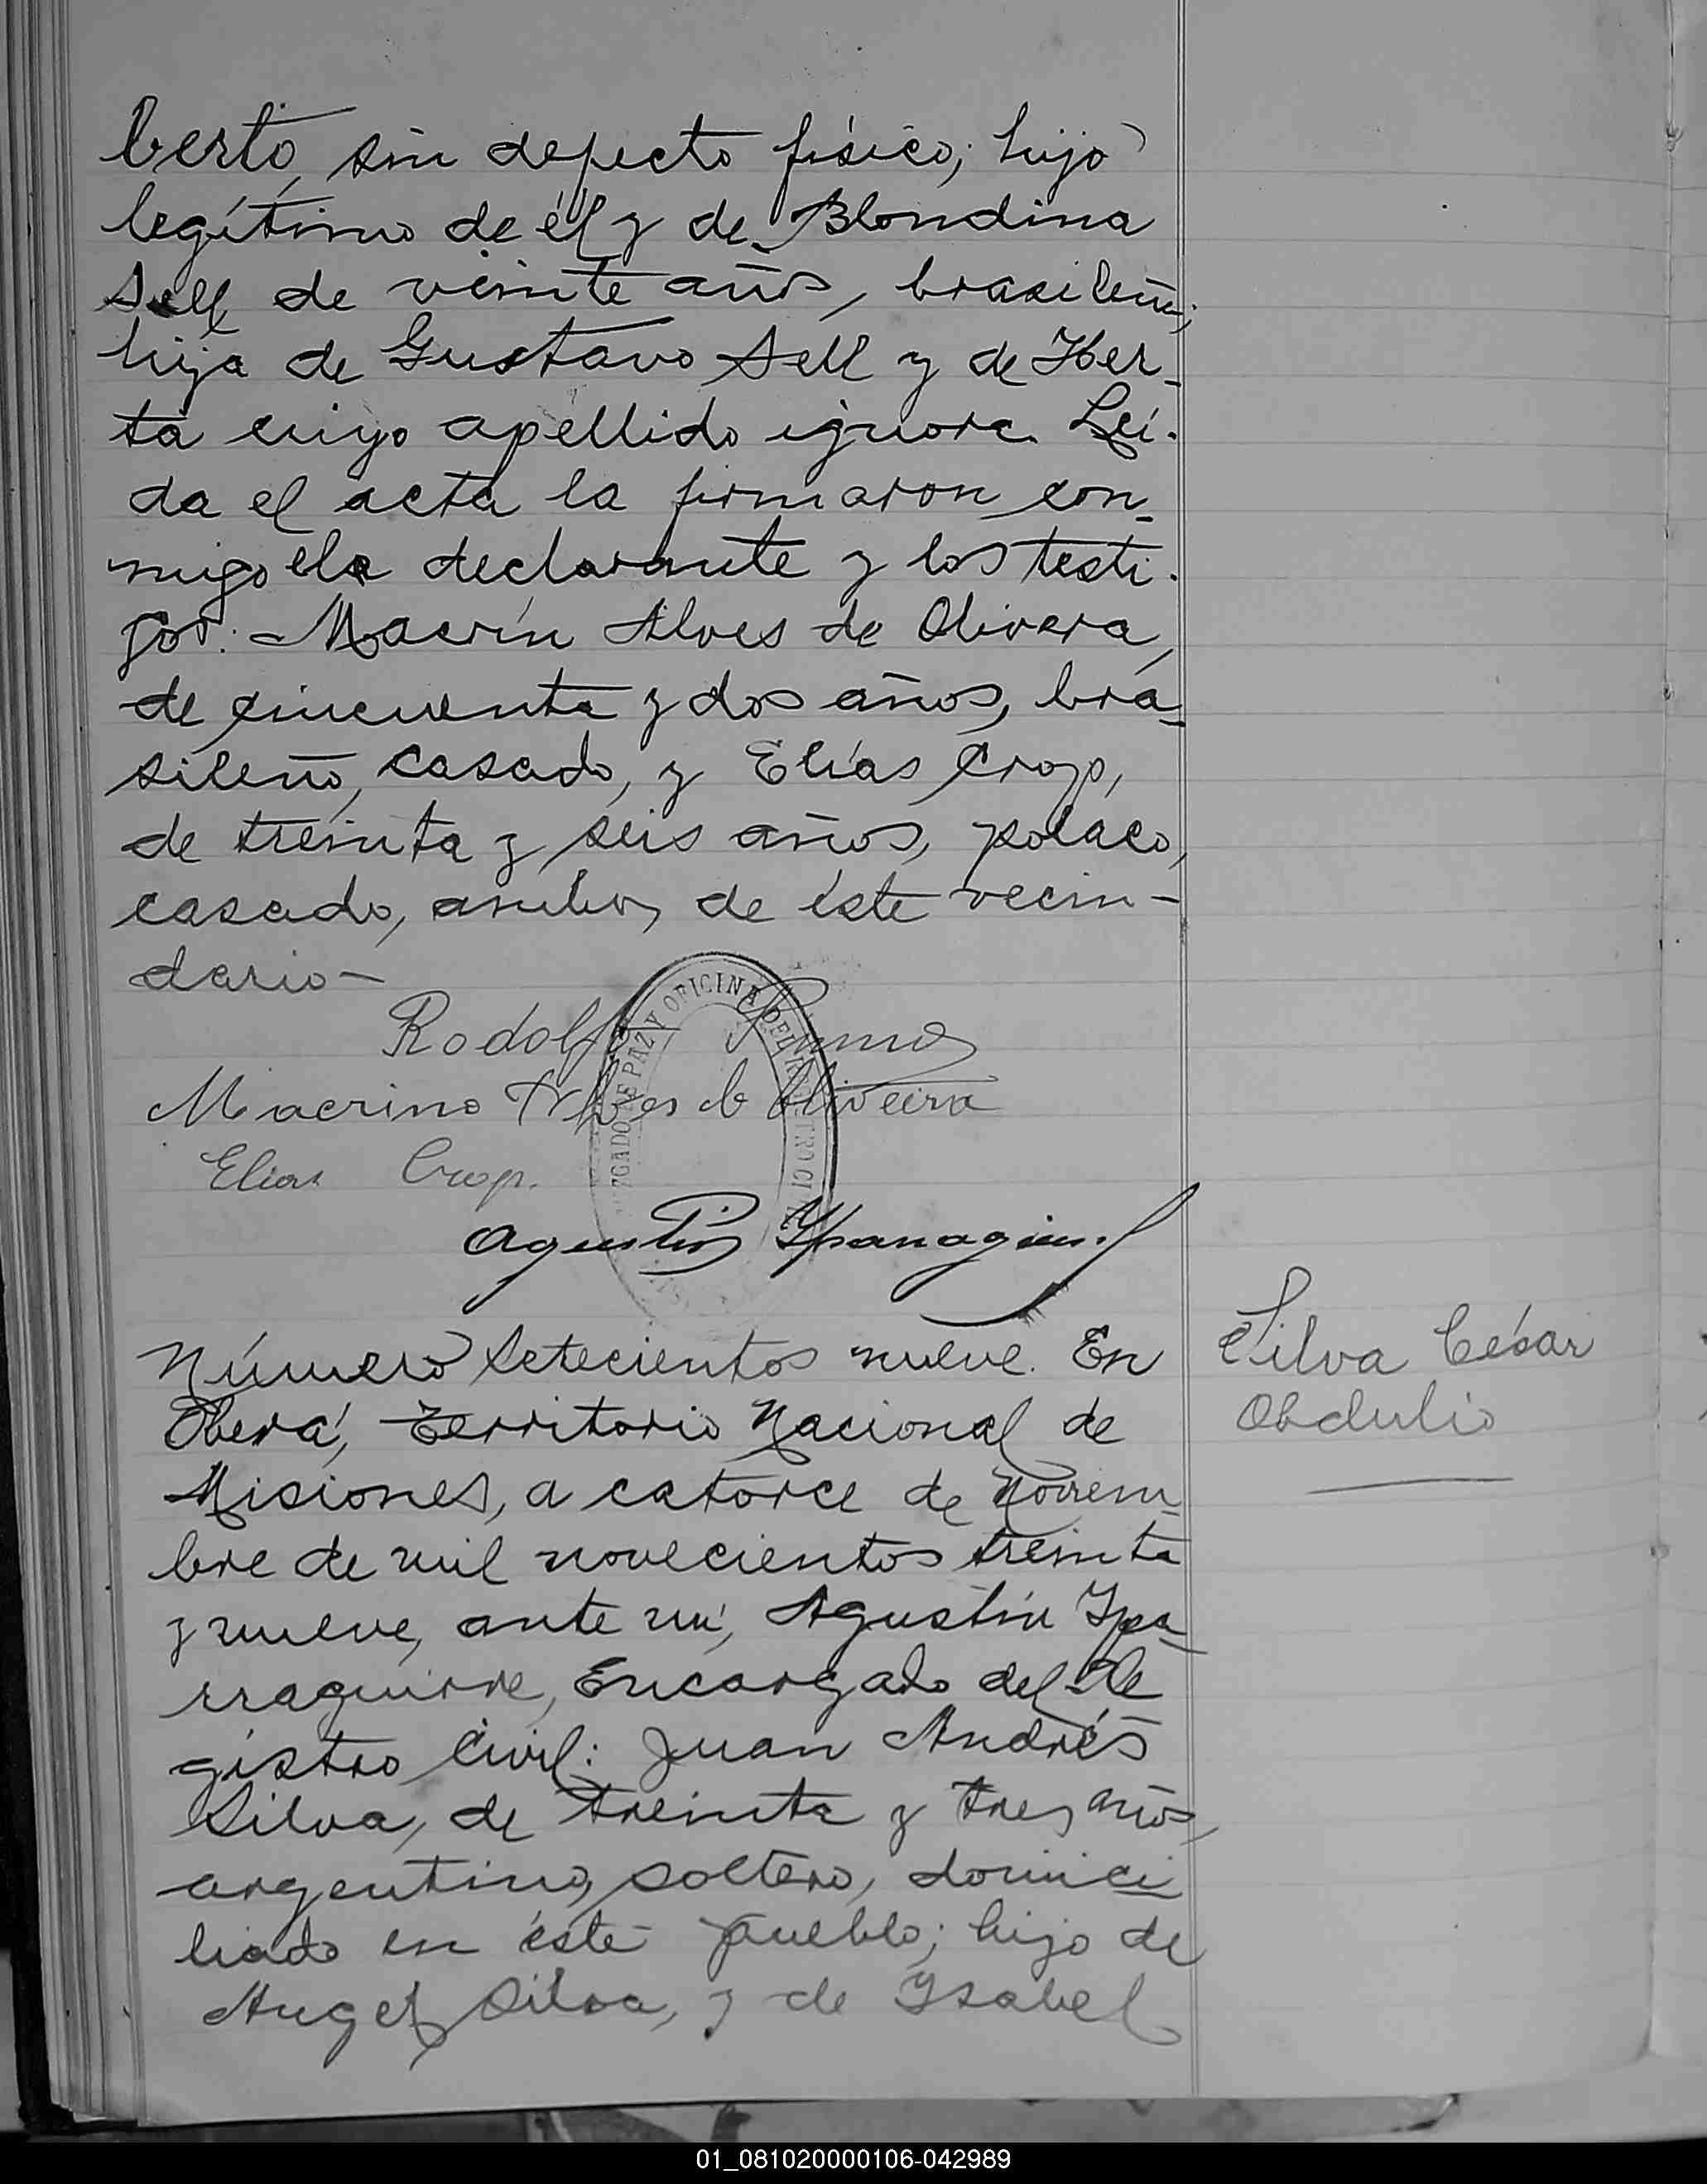 berto, sin defecto físico; hijo
legítimo de él y de Blondina
Sell de veinte años, brasileña;
hija de Gustavo Sell y de Her-
ta cuyo apellido ignora. Leí-
da el acta la firmaron con-
migo el declarante y los testi-
gos: Macrín Alves de Olivera,
de cincuenta y dos años, bra-
sileño, casado, y Elías Crop,
de treinta y seis años, polaco,
casado, ambos de éste vecin-
dario-
Rodolfo
Macrino Alves de Oliveira
Elias Crop.
JUZGADO DE PAZ Y OFICINA DEL REGISTRO CIVIL
Agustín Yparraguirre
Número setecientos nueve. En
Oberá, Territorio Nacional de
Misiones, a catorce de Noviem-
bre de mil novecientos treinta
y nueve, ante mí, Agustín Ypa-
rraguirre, Encargado del Re
gistro Civil: Juan Andrés
Silva, de treinta y tres años,
argentino, soltero, domici
liado en éste pueblo; hijo de
Angel Silva, y de Ysabel
Silva César
Obdulio
01_081020000106-042989